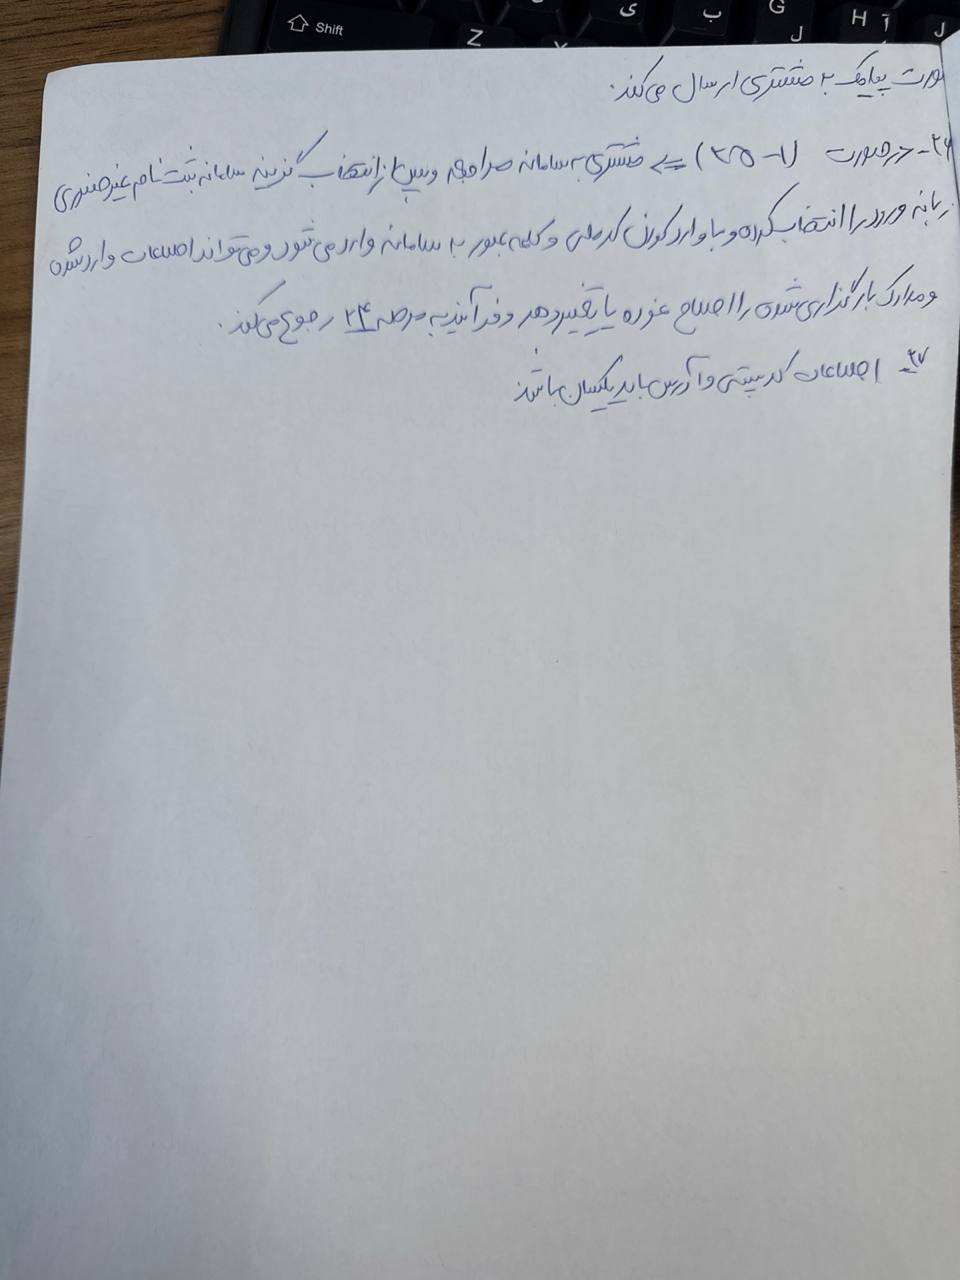 Shift Z ی ب G ل H آ ل
صورت پیامک به مشتری ارسال می‌کند.
۲۶- در صورت (۲۵-۱) ⇐ مشتری به سامانه مراجعه و پس از انتخاب گزینه سامانه ثبت نام غیرحضوری
زبانه ورود را انتخاب کرده و با وارد کردن کد ملی و کلمه عبور به سامانه وارد می شود و می تواند اطلاعات وارد شده
و مدارک بارگذاری شده را اصلاح نموده یا تغییر دهد و فرآیند به مرحله ۲۴ رجوع می‌کند.
۲۷- اطلاعات کد پستی و آدرس باید یکسان باشد